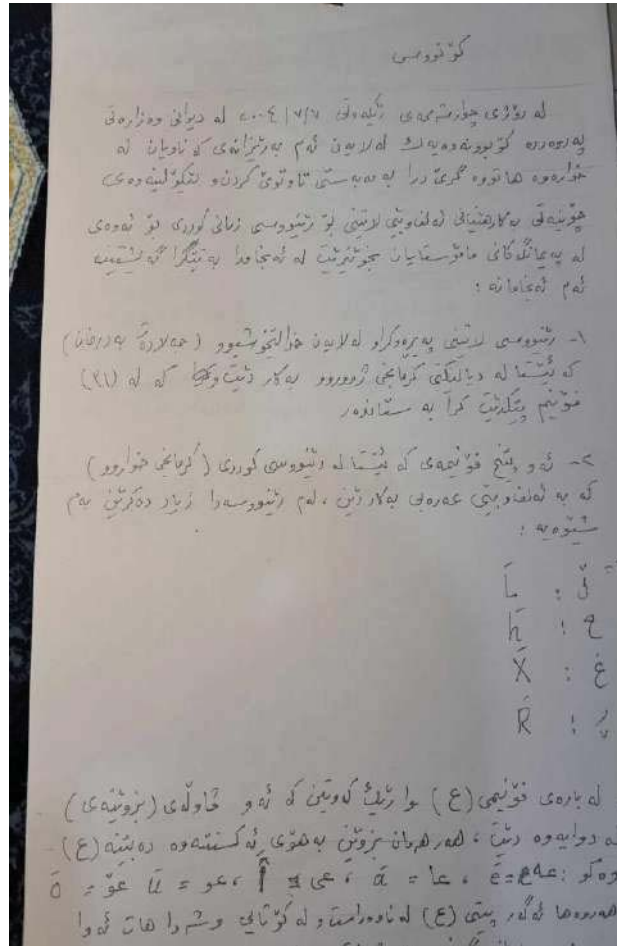 کۆنووسی
لە رۆژی چوارشەممەی رێکەوتی ٢٠٠٤/٧/٧ لە دیوانی وەزارەتی
پەروەردە کۆبوونەوەیەك لەلایەن ئەم بەڕێزانەی کە ناویان لە
خوارەوە هاتووە گرێ درا بە مەبەستی تاوتوێ کردن و لێکۆڵینەوەی
چۆنیەتی بەکارهێنانی ئەلفاوبێی لاتینی بۆ رێنووسی زمانی کوردی بۆ ئەوەی
لە پەیمانگاکانی مامۆستایان بخوێنرێت لە ئەنجامدا بە تێکڕا گەیشتینە
ئەم ئەنجامانە :
١- رێنووسی لاتینی پەیڕەوکراو لەلایەن خوالێخۆشبوو (جەلادەت بەدرخان)
کە ئێستا لە دیالێکتی کرمانجی ژووروو بەکار دێت و کە لە (٣١)
فۆنیم پێکدێت کرا بە ستاندەر
٢- ئەو پێنج فۆنیمەی کە ئێستا لە رێنووسی کوردی (کرمانجی خواروو)
کە بە ئەلفاوبێی عەرەبی بەکار دێن ، لەم رێنووسەدا زیاد دەکرێن بەم
شێوەیە :
ڵ :
ح : ħ
غ : Ẍ
ڕ : R̄
لە بارەی فۆنیمی (ع) وا رێك کەوتین کە ئەو ڤاوڵەی (بزوێنەی)
لە دوایەوە دێت ، هەر هەمان بزوێن بەهۆی ئەکسنتەوە دەبێتە (ع)
وەکو : عە = ē ، عا = ā ، عی = ، عو = ū عۆ = ō
هەروەها ئەگەر پیتی (ع) لە ناوەڕاست و لە کۆتایی وشەدا هات ئەوا